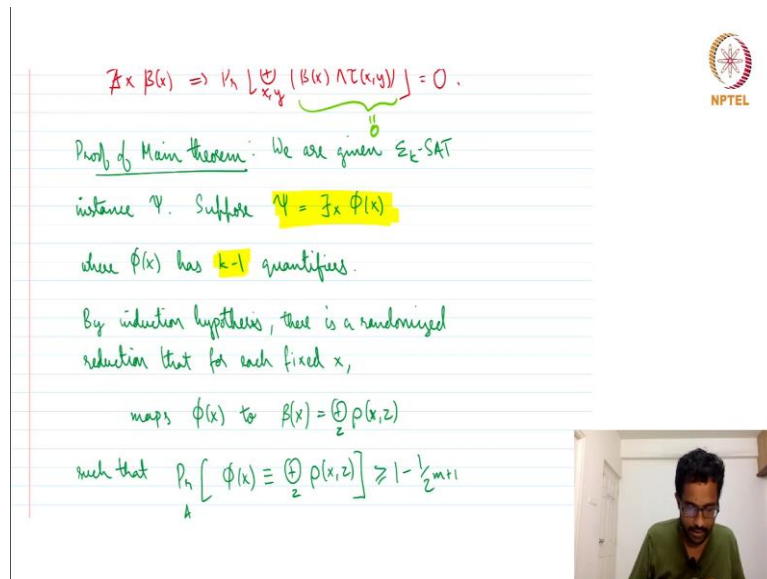 ∄x β(x) ⇒ Pr [ ⊕_{x,y} (β(x) ∧ τ(x,y)) ] = 0.
"
0
NPTEL
Proof of Main theorem: We are given Σ_k-SAT
instance Ψ. Suppose Ψ = ∃x φ(x)
where φ(x) has k-1 quantifiers.
By induction hypothesis, there is a randomized
reduction that for each fixed x,
maps φ(x) to β(x) = ⊕_z ρ(x,z)
such that Pr_A [ φ(x) ≡ ⊕_z ρ(x,z) ] ≥ 1 - 1/2^{m+1}